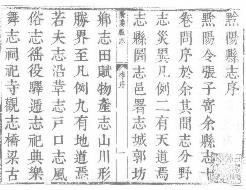 黔陽縣志序
黔陽令張子寄余縣志十
卷問序於余其間志分野
志災異凡例二有天道焉
志縣圖志邑署志城郭坊
鄉志田賦物產志山川形
勝界至凡例九有地道焉
若夫志沿革志戶口志風
俗志徭役驛遞志祀典樂
舞志祠祀寺觀志橋梁古